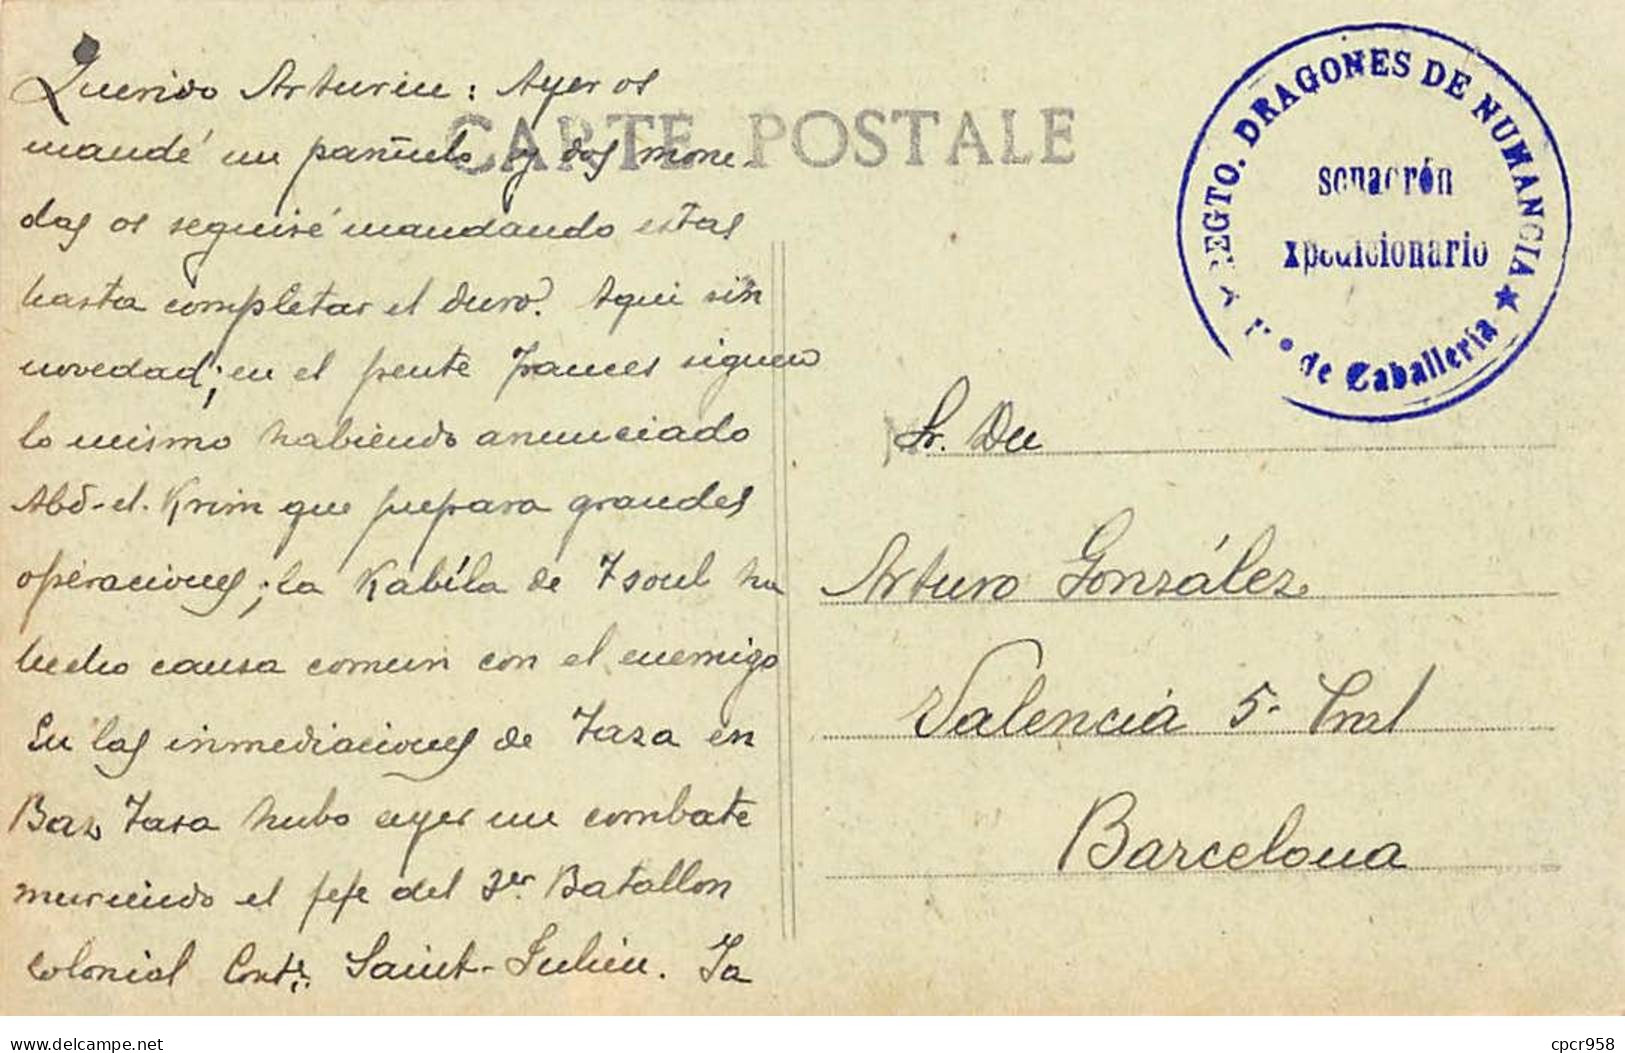 Querido Arturin: Ayer os
mandé un pañuelo y dos mone-
das os seguiré mandando estas
hasta completar el duro. Aqui sin
novedad; en el frente frances siguen
lo mismo habiendo anunciado
Abd-el-Krim que prepara grandes
operaciones; la Kabíla de Tsoul ha
hecho causa comun con el enemigo
En las inmediaciones de Taza en
Bab Taza hubo ayer un combate
muriendo el jefe del 3er Batallon
colonial Conte. Saint-Julien. Ya
CARTE POSTALE
REGTO. DRAGONES DE NUMANCIA ★
scuadrón
xpedicionario
de Caballería
Sr. Dn
Arturo González
Valencia 5- Pral
Barcelona
delcampe.net
cpcr958